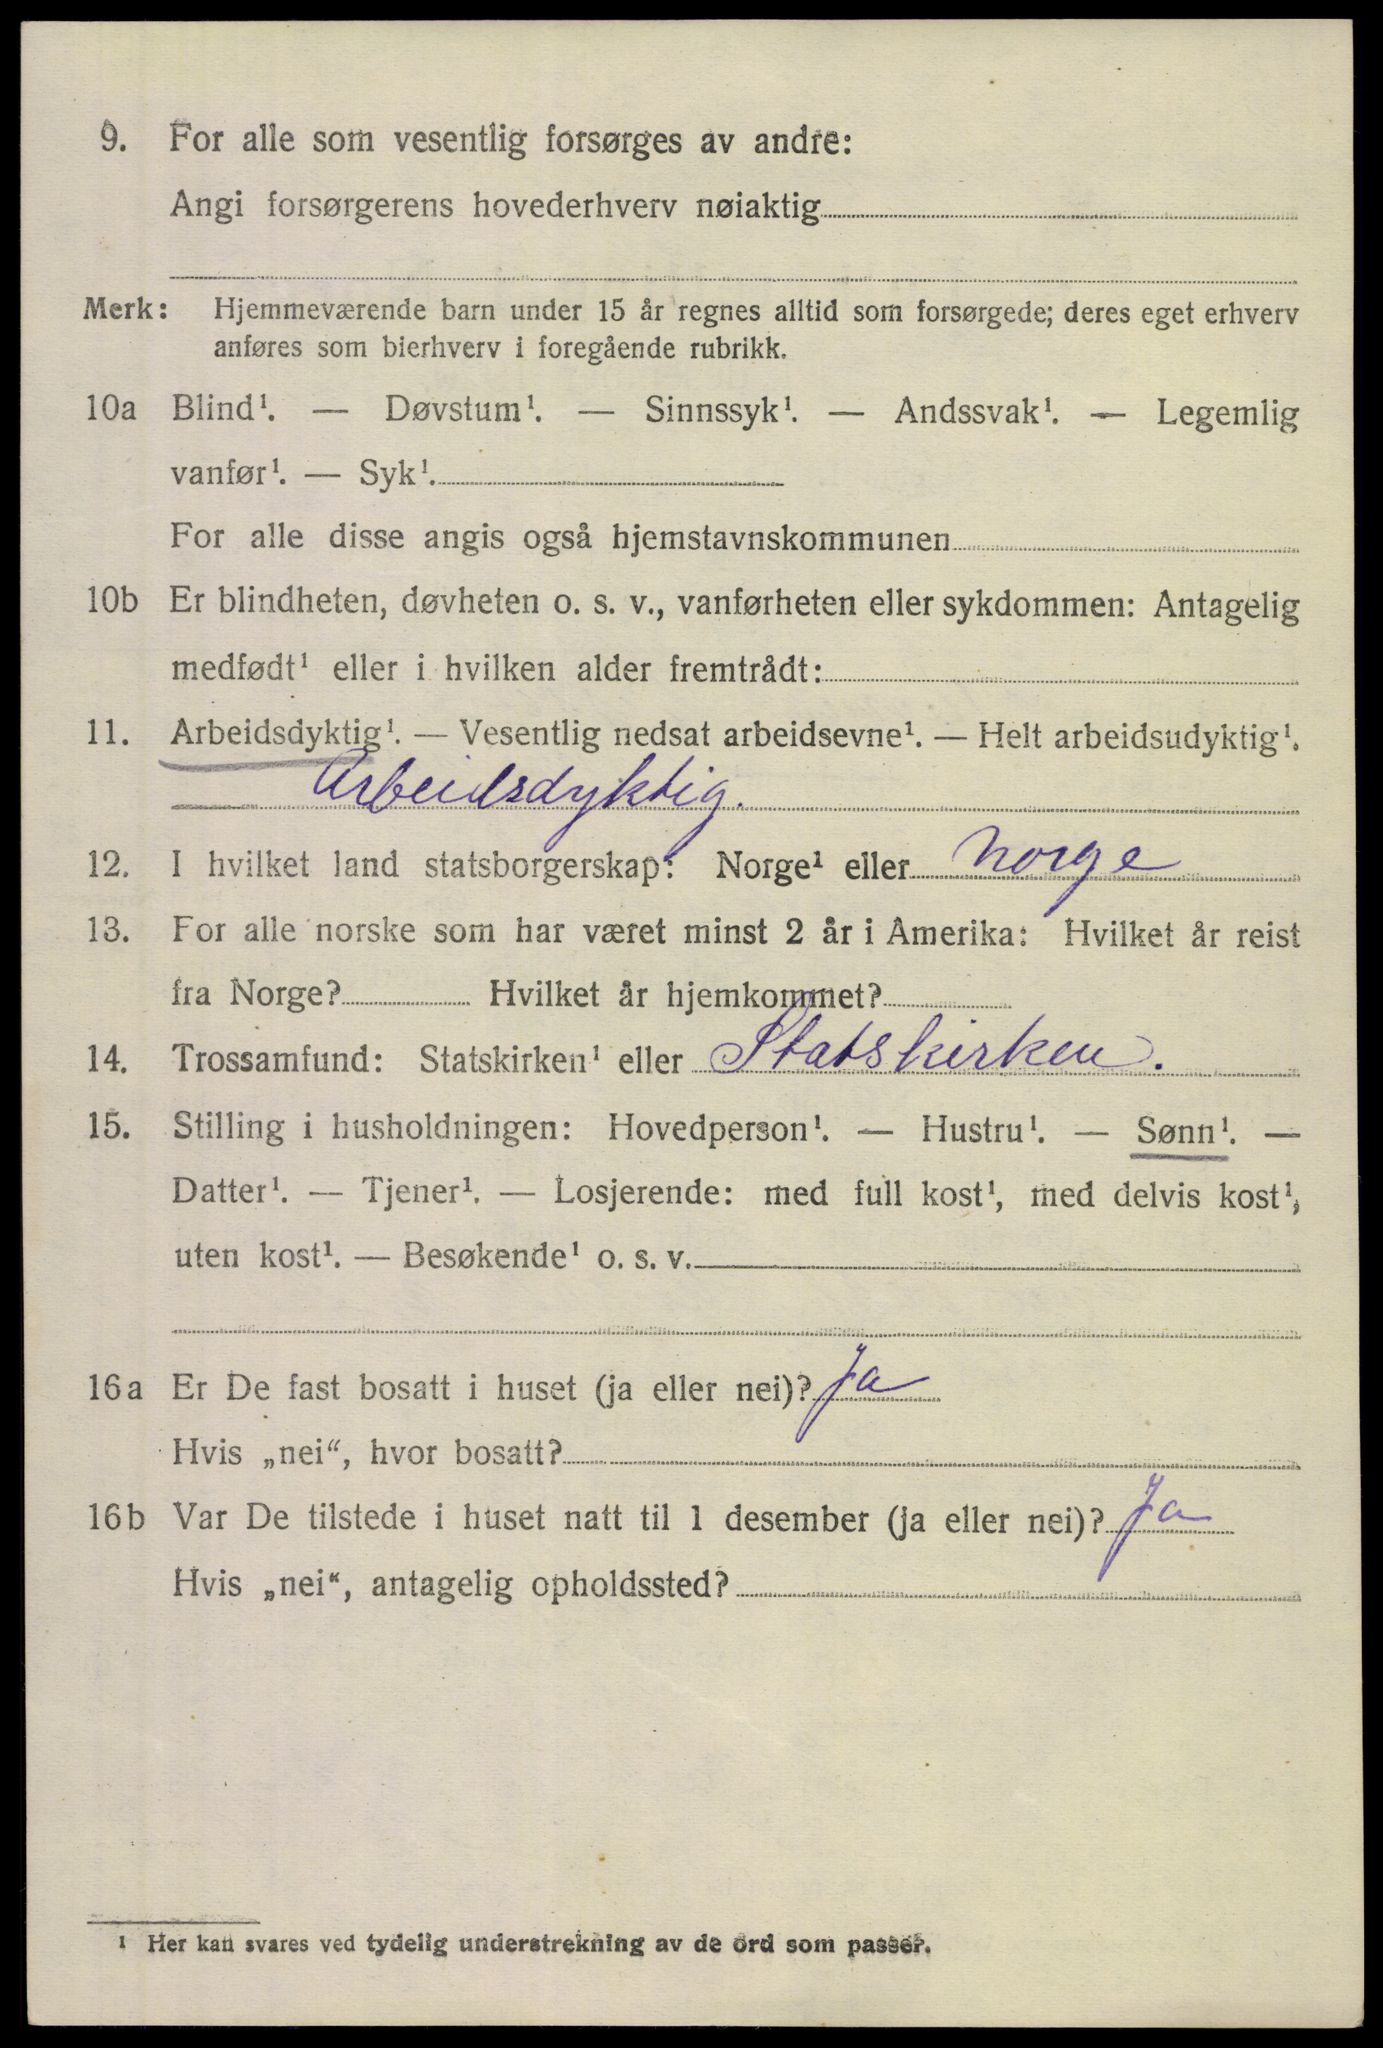 9. For alle som vesentlig forsørges av andre:
Angi forsørgerens hovederhverv nøiaktig
Merk: Hjemmeværende barn under 15 år regnes alltid som forsørgede; deres eget erhverv
anføres som bierhverv i foregående rubrikk.
10a Blind¹. — Døvstum¹. — Sinnssyk¹. — Andssvak¹. — Legemlig
vanfør¹. — Syk¹.
For alle disse angis også hjemstavnskommunen
10b Er blindheten, døvheten o. s. v., vanførheten eller sykdommen: Antagelig
medfødt¹ eller i hvilken alder fremtrådt:
11. Arbeidsdyktig¹. — Vesentlig nedsat arbeidsevne¹. — Helt arbeidsudyktig¹.
Arbeidsdyktig.
12. I hvilket land statsborgerskap: Norge¹ eller Norge
13. For alle norske som har været minst 2 år i Amerika: Hvilket år reist
fra Norge? Hvilket år hjemkommet?
14. Trossamfund: Statskirken¹ eller Statskirken.
15. Stilling i husholdningen: Hovedperson¹. — Hustru¹. — Sønn¹. —
Datter¹. — Tjener¹. — Losjerende: med full kost¹, med delvis kost¹,
uten kost¹. — Besøkende¹ o. s. v.
16a Er De fast bosatt i huset (ja eller nei)? Ja
Hvis „nei“, hvor bosatt?
16b Var De tilstede i huset natt til 1 desember (ja eller nei)? Ja
Hvis „nei“, antagelig opholdssted?
¹ Her kan svares ved tydelig understrekning av de ord som passer.